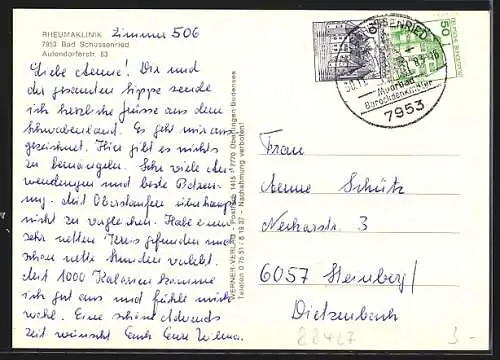 RHEUMAKLINIK
7953 Bad Schussenried
Aulendorferstr. 63
Zimmer 506
Liebe Aenne! Dir und
der gesamten Sippe sende
ich herzliche Grüsse aus dem
Schwabenland. Es geht mir aus-
gezeichnet. Hier gibt es nichts
zu bemängeln. Sehr viele An-
wendungen und beste Betreu-
ung. Mit Oberstaufen überhaupt
nicht zu vergleichen. Habe einen
sehr netten Kreis gefunden und
schon nette Stunden verlebt.
Mit 1000 Kalorien komme
ich gut aus und fühle mich
wohl. Eine schöne Advents
zeit wünscht Euch Eure Wilma.
WERNER-VERLAG - Postfach 1415 - 7770 Überlingen-Bodensee
Telefon 0 75 51 / 6 19 37 - Nachahmung verboten!
SCHUSSENRIED
Moorbad
Barockdenkmäler
7953
50
DEUTSCHE BUNDESPOST
Frau
Aenne Schütz
Neckarstr. 3
6057 Steinberg/
Dietzenbach
28427
3.-